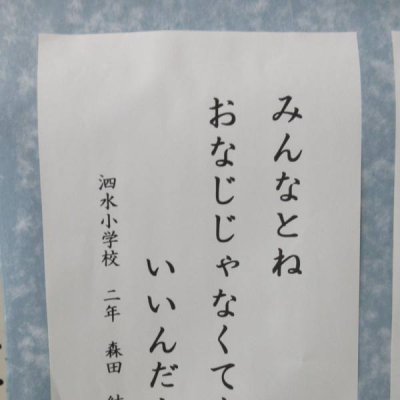 みんなとね
おなじじゃなくて
いいんだ
泗水小学校 二年 森田